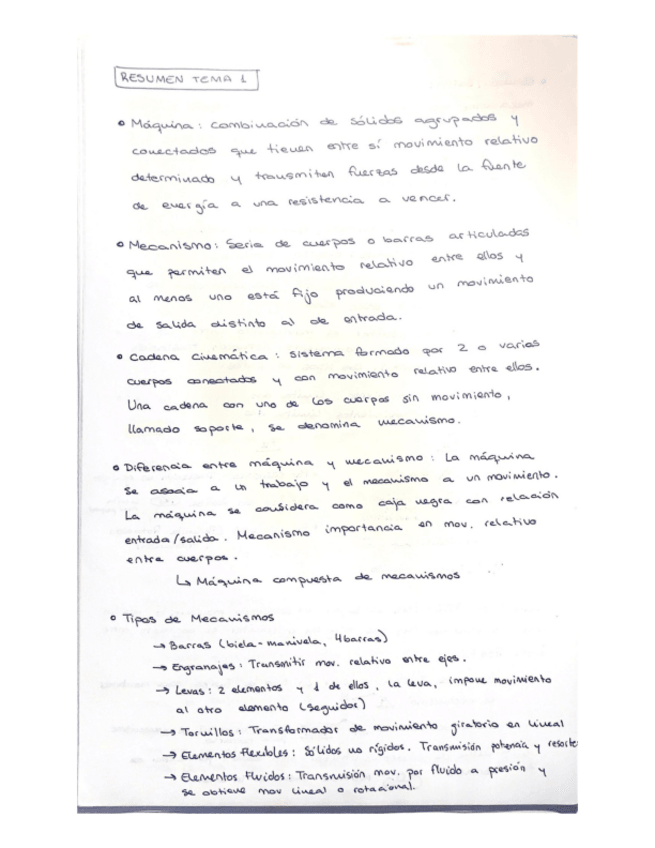 RESUMEN TEMA 1
• Máquina: combinación de sólidos agrupados y
conectados que tienen entre sí movimiento relativo
determinado y transmiten fuerzas desde la fuente
de energía a una resistencia a vencer.
• Mecanismo: Serie de cuerpos o barras articuladas
que permiten el movimiento relativo entre ellos y
al menos uno está fijo produciendo un movimiento
de salida distinto al de entrada.
• Cadena cinemática: sistema formado por 2 o varios
cuerpos conectados y con movimiento relativo entre ellos.
Una cadena con uno de los cuerpos sin movimiento,
llamado soporte, se denomina mecanismo.
• Diferencia entre máquina y mecanismo: La máquina
se asocia a un trabajo y el mecanismo a un movimiento.
La máquina se considera como caja negra con relación
entrada/salida. Mecanismo importancia en mov. relativo
entre cuerpos.
↳ Máquina compuesta de mecanismos
• Tipos de Mecanismos
→ Barras (biela-manivela, 4barras)
→ Engranajes: Transmitir mov. relativo entre ejes.
→ Levas: 2 elementos y 1 de ellos, la leva, impone movimiento
al otro elemento (seguidor)
→ Tornillos: Transformador de movimiento giratorio en lineal
→ Elementos flexibles: Sólidos no rígidos. Transmisión potencia y resorte
→ Elementos Fluidos: Transmisión mov. por fluido a presión y
se obtiene mov lineal o rotacional.